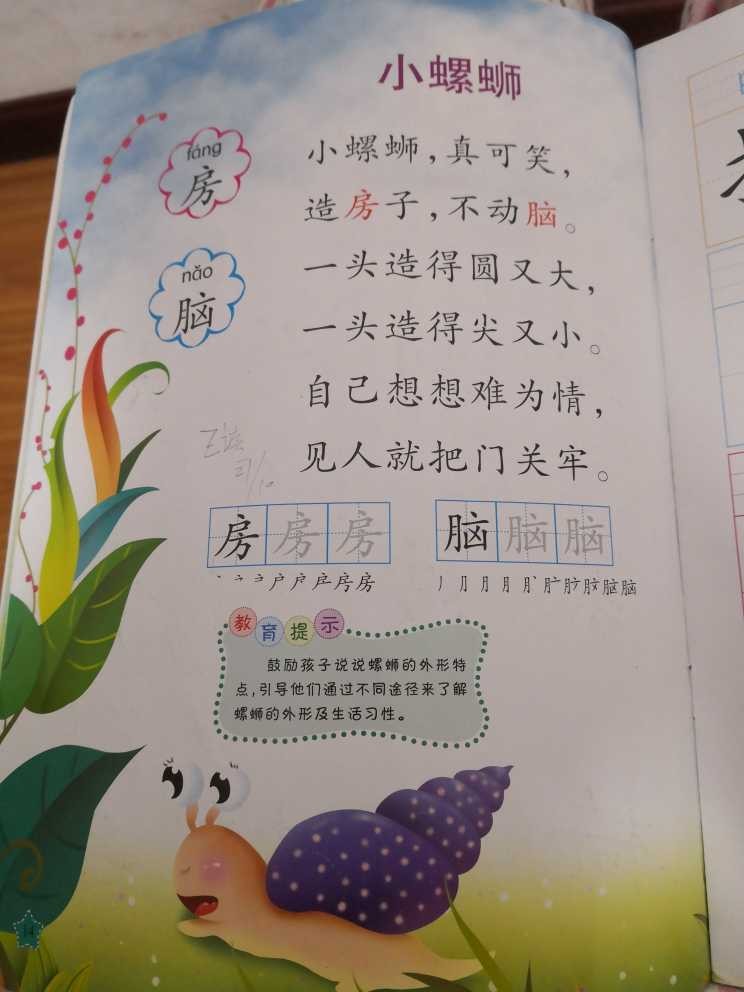 小螺蛳
fáng
房
小螺蛳，真可笑，
造房子，不动脑。
nǎo
脑
一头造得圆又大，
一头造得尖又小。
自己想想难为情，
见人就把门关牢。
房房房
脑脑脑
教育提示
鼓励孩子说说螺蛳的外形特
点，引导他们通过不同途径来了解
螺蛳的外形及生活习性。
14